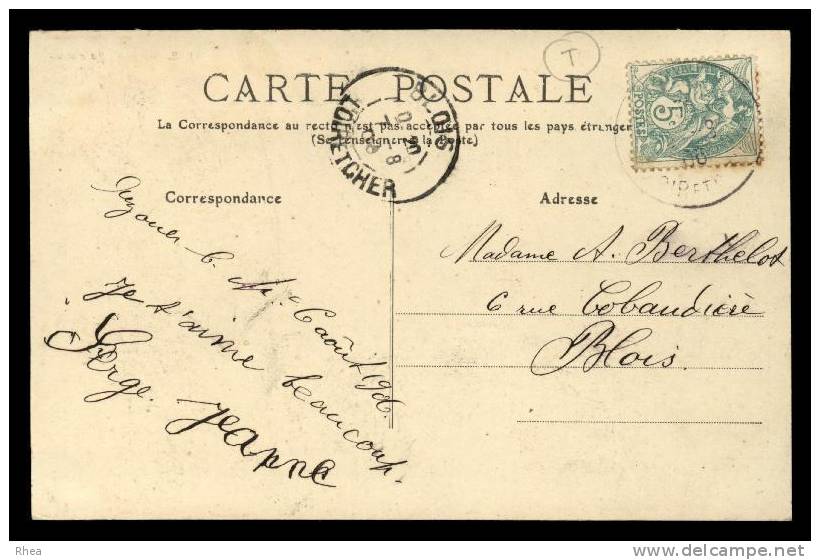 T
CARTE POSTALE
La Correspondance au recto n'est pas acceptée par tous les pays étrangers
(Se renseigner à la Poste)
BLOIS
LOIR-ET-CHER
5
POSTES
Correspondance
Adresse
6 août 1906
Je t'aime beaucoup.
Serge. Jeanne
Madame A. Berthelot
6 rue Cobaudière
Blois.
Rhea
www.delcampe.net